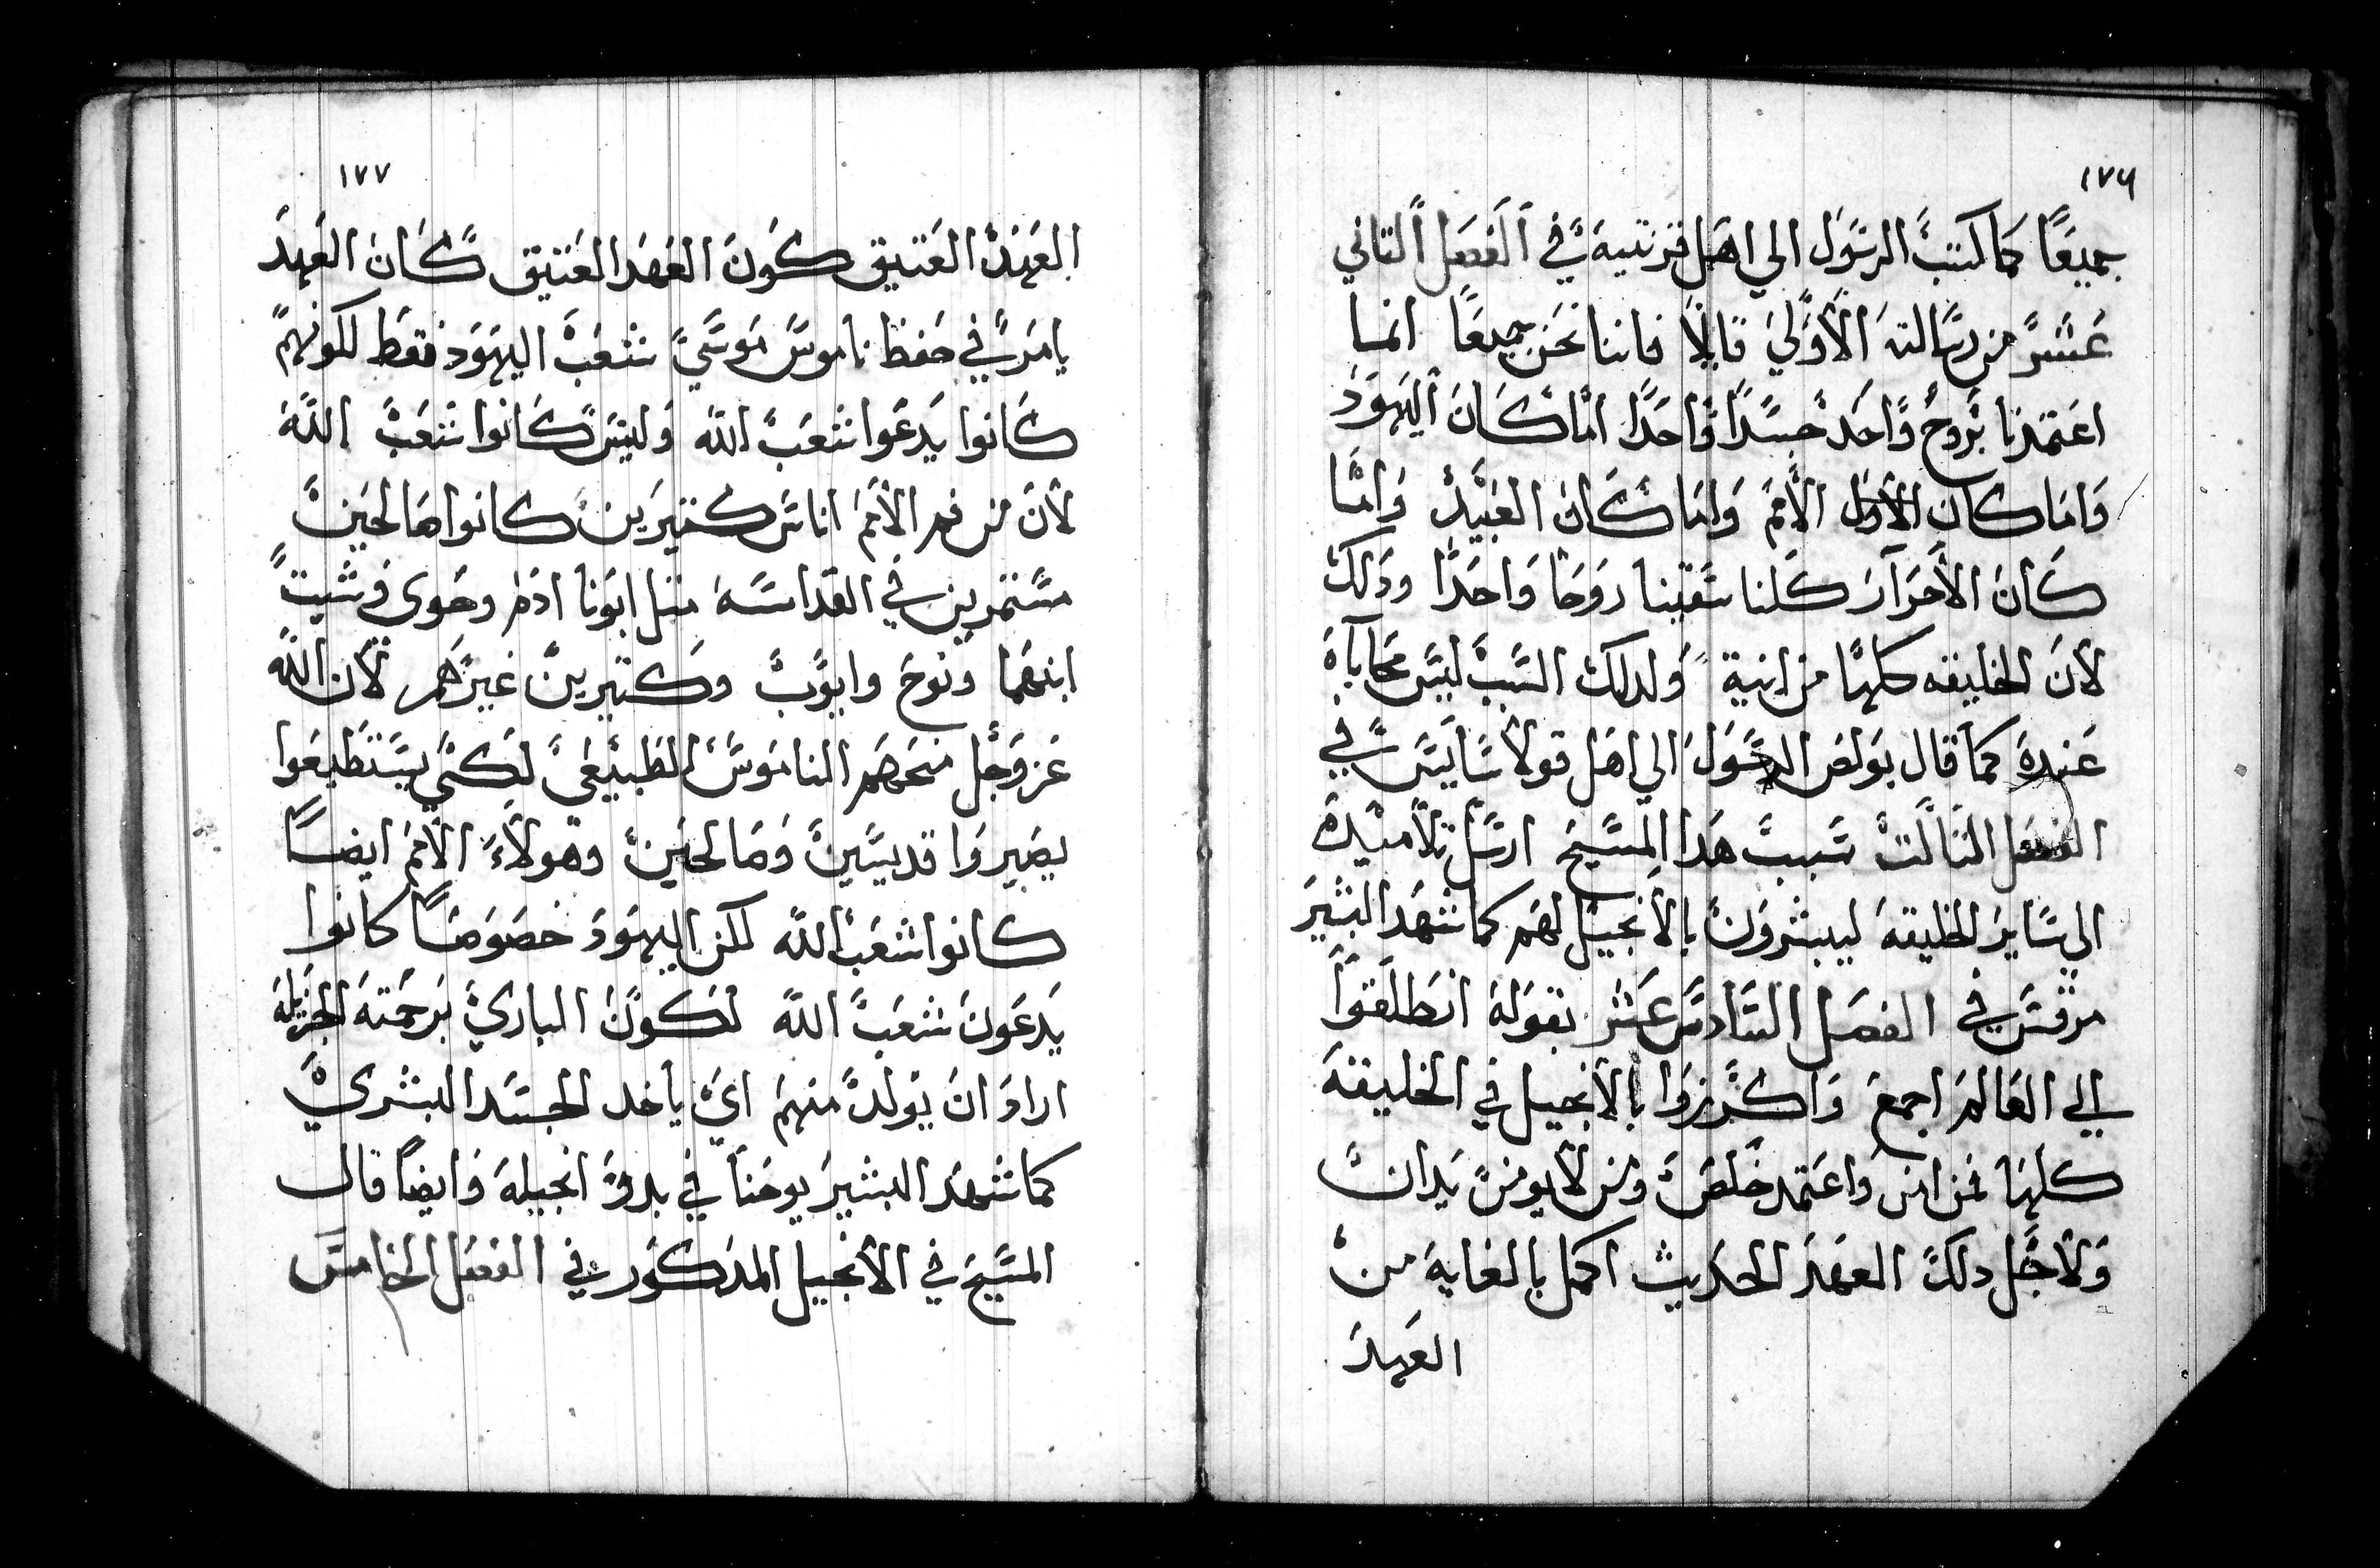 ١٧٦
جميعًا كما كتب الرسول الي اهل قرنتية في الفصل التاني
عشر من رسالته الاولي قايلًا فاننا نحن جميعًا انما
اعتمدنا بروح واحد جسدًا واحدًا اما كان اليهود
واما كان الاول الامم واما كان العبيد واما
كان الاحرار كلنا سقينا روحًا واحدًا ودلك
لان الخليقه كلها من انية ولدلك السبب ليس محاباه
عنده كما قال بولص الرسول الي اهل قولاسايس في
الفصل التالت سبب هدا المسيح ارسل تلاميده
الي ساير الخليقة ليبشرون بالانجيل لهم كما شهد البشير
مرقس في الفصل السادس عشر بقوله انطلقوا
الي العالم اجمع واكرزوا بالانجيل في الخليقة
كلها فمن امن واعتمد خلص ومن لا يومن يدان
ولاجل دلك العهد الحديث اكمل بالغاية من
العهد
١٧٧
العهد العتيق كون العهد العتيق كان العهد
يامر في حفظ ناموس موسي شعب اليهود فقط لكونهم
كانوا يدعوا شعب الله وليس كانوا شعب الله
لان من هم الامم اناس كتيرين كانوا صالحين
مستمرين في القداسة متل ابونا ادم وحوي وشيت
ابنهما ونوح وايوب وكتيرين غيرهم لان الله
عز وجل منحهم الناموس الطبيعي لكي يستطيعوا
يصيروا قديسين وصالحين وهولاء الامم ايضًا
كانوا شعب الله لكن اليهود خصوصًا كانوا
يدعون شعب الله لكون الباري برحمته الجزيله
اراد ان يولد منهم اي ياخد الجسد البشري
كما شهد البشير يوحنا في بدو انجيله وايضًا قال
المسيح في الانجيل المدكور في الفصل الخامس